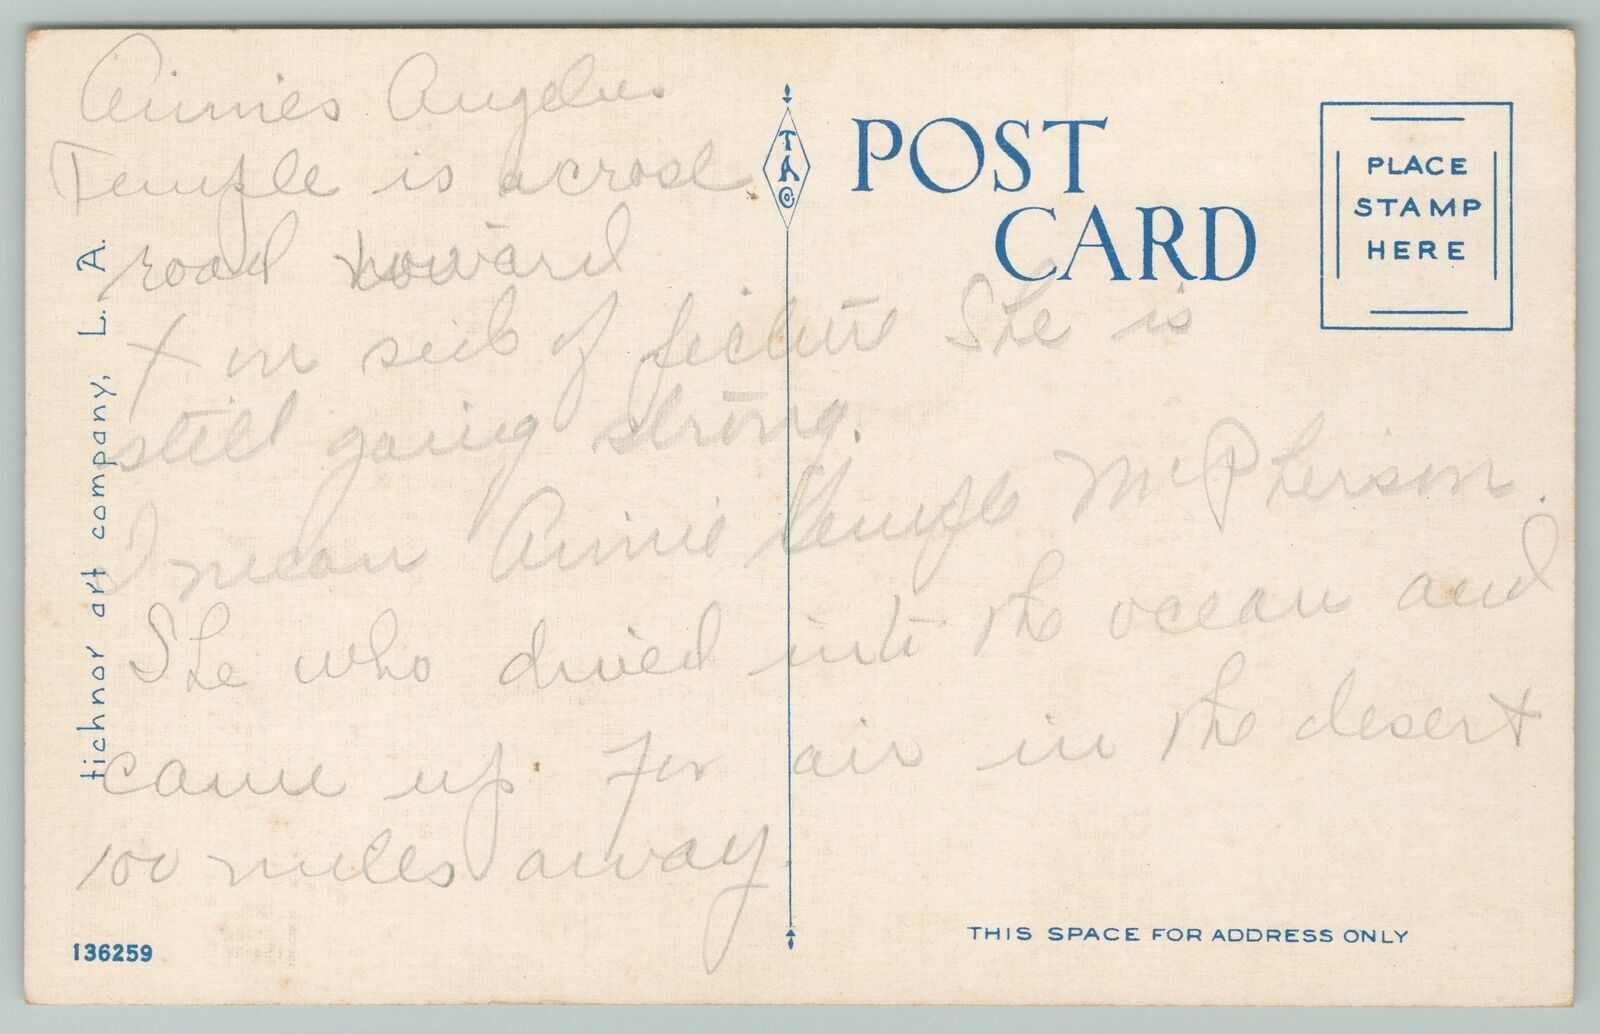 Aimies Angelus
Temple is acrost
road toward
X on side of picture She is
still going strong.
I mean Aimie Semple McPherson.
She who dived into the ocean and
came up for air in the desert
100 miles away.
tichnor art company, L. A.
136259
TAC
POST
CARD
PLACE
STAMP
HERE
THIS SPACE FOR ADDRESS ONLY